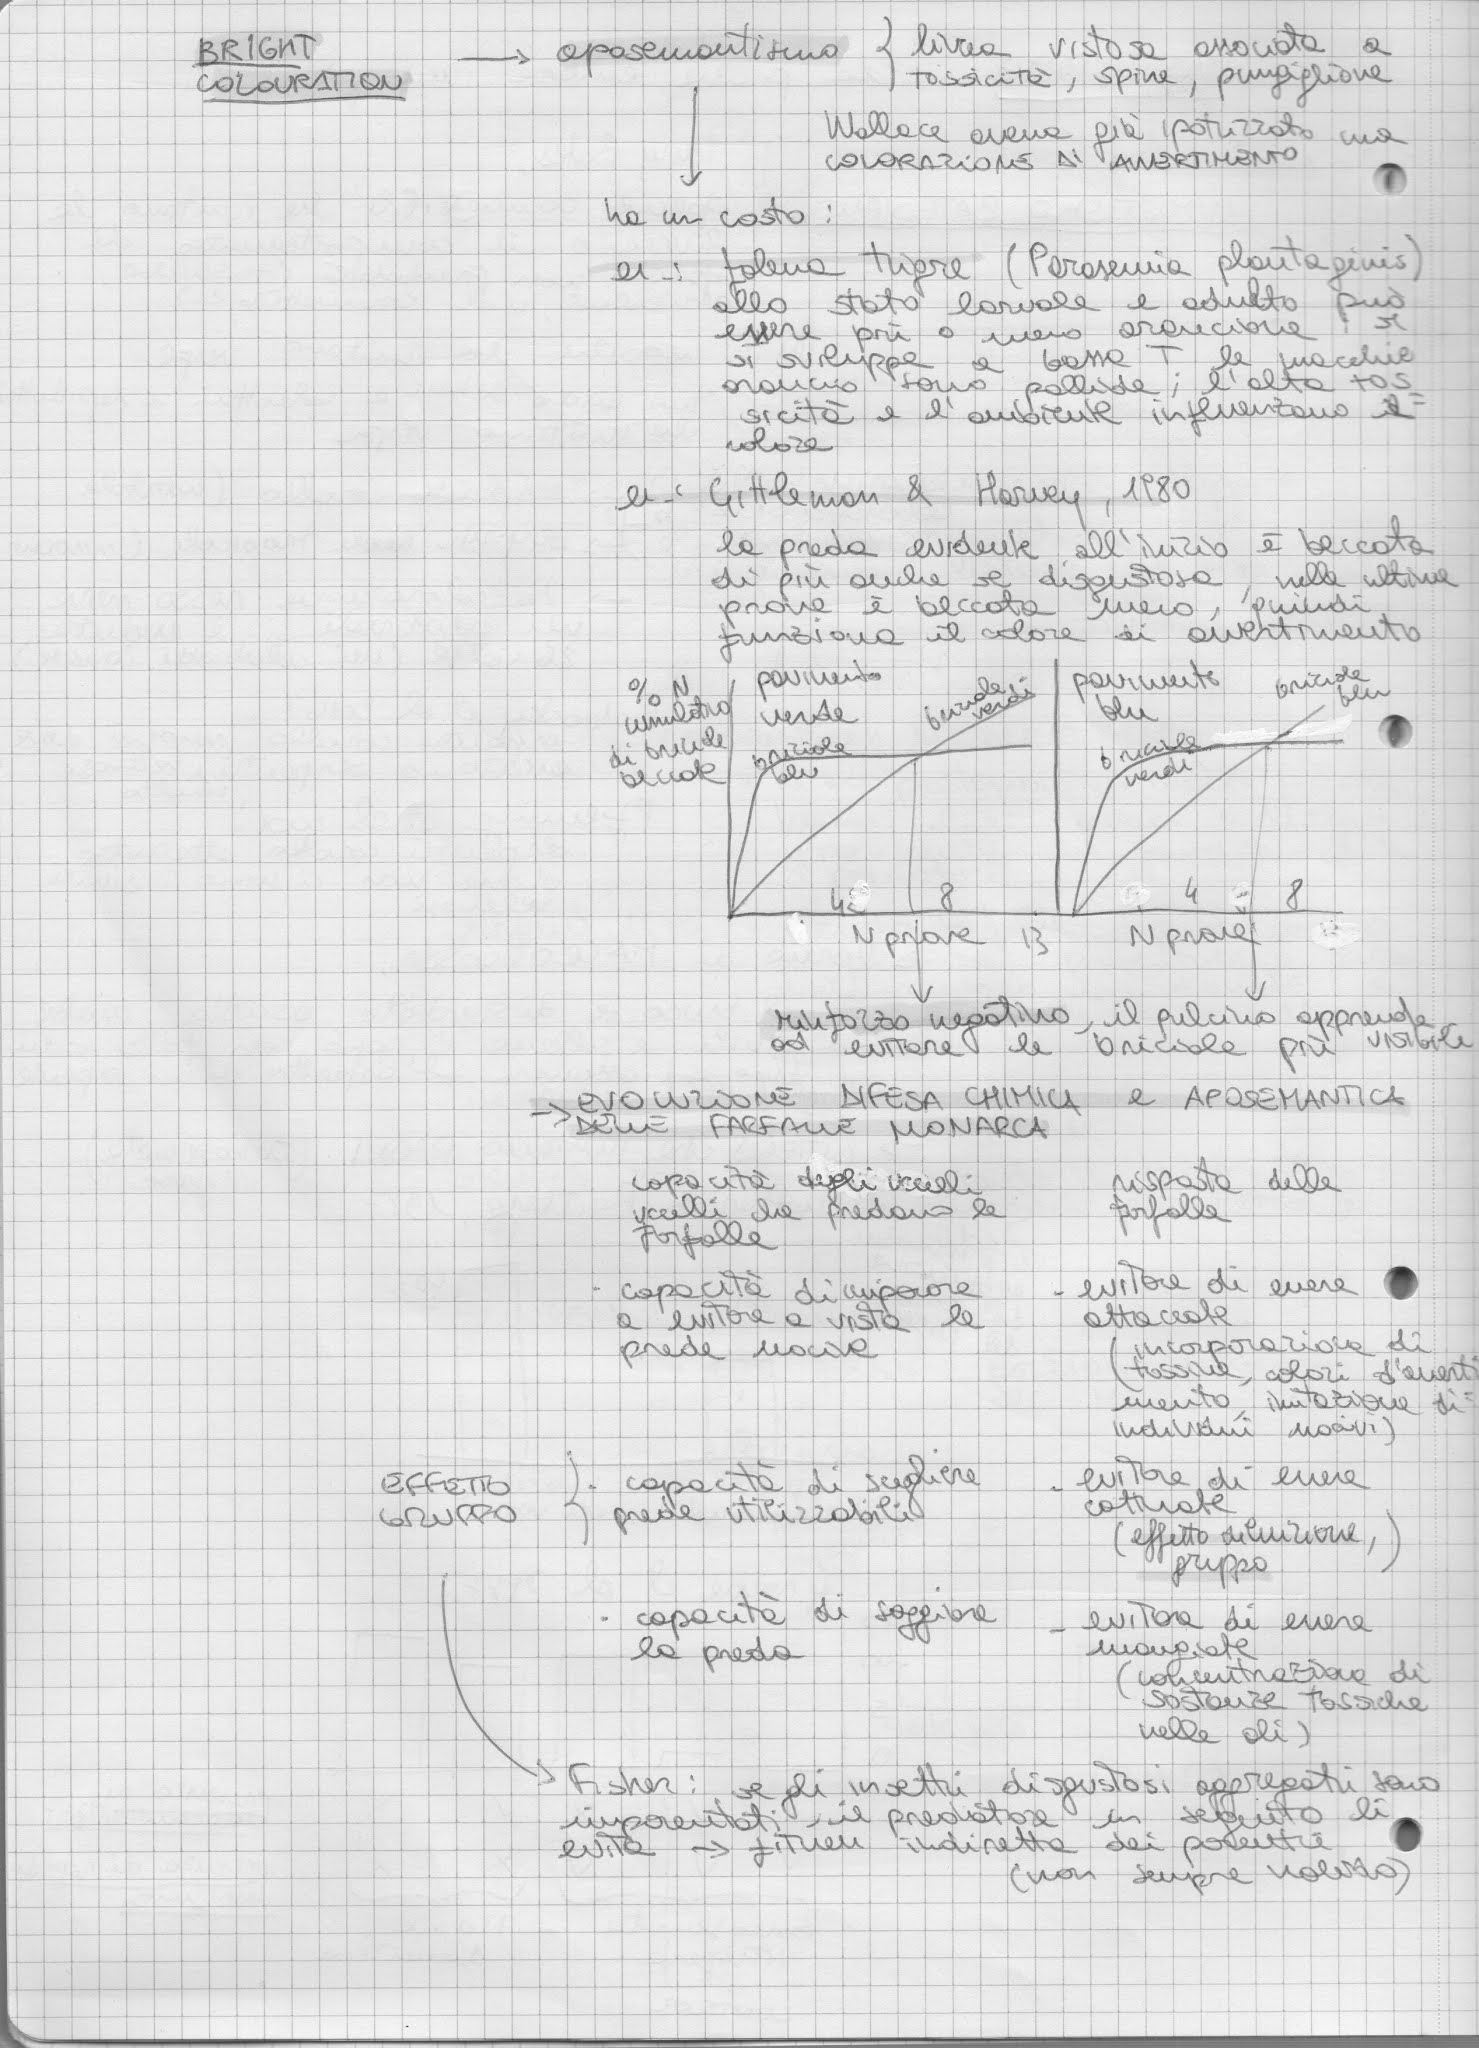 BRIGHT
COLOURATION
→ aposemantismo
livrea vistosa associata a
tossicità, spine, pungiglione
Wallace aveva già ipotizzato una
COLORAZIONE DI AVVERTIMENTO
ha un costo:
es.: falena tigre (Parasemia plantaginis)
allo stato larvale e adulto può
essere più o meno arancione: se
si sviluppa a bassa T le macchie
arancio sono pallide; l'alta tos
sicità e l'ambiente influenzano il=
colore
es.: Gittleman & Harvey, 1980
la preda evidente all'inizio è beccata
di più anche se disgustosa, nelle ultime
prove è beccata meno, quindi
funziona il colore di avvertimento
% N
cumulativo
di briciole
beccate
pavimento
verde
briciole
verdi
briciole
blu
4
8
N prove 13
pavimento
blu
briciole
blu
briciole
verdi
4
8
N prove
rinforzo negativo, il pulcino apprende
ad evitare le briciole più visibili
→ EVOLUZIONE DIFESA CHIMICA e APOSEMANTICA
DELLE FARFALLE MONARCA
capacità degli uccelli
uccelli che predano le
farfalle
risposta delle
farfalle
· capacità di imparare
a evitare a vista le
prede nocive
- evitare di essere
attaccate
(incorporazione di
tossine, colori d'averti
mento, imitazione di=
individui nocivi)
EFFETTO
GRUPPO
· capacità di scegliere
prede utilizzabili
- evitare di essere
catturate
(effetto diluizione,
gruppo)
· capacità di saggiare
la preda
- evitare di essere
mangiate
(concentrazione di
sostanze tossiche
nelle ali)
Fisher: se gli insetti disgustosi aggregati sono
imparentati il predatore in seguito li
evita → fitness indiretta dei parenti
(non sempre valido)